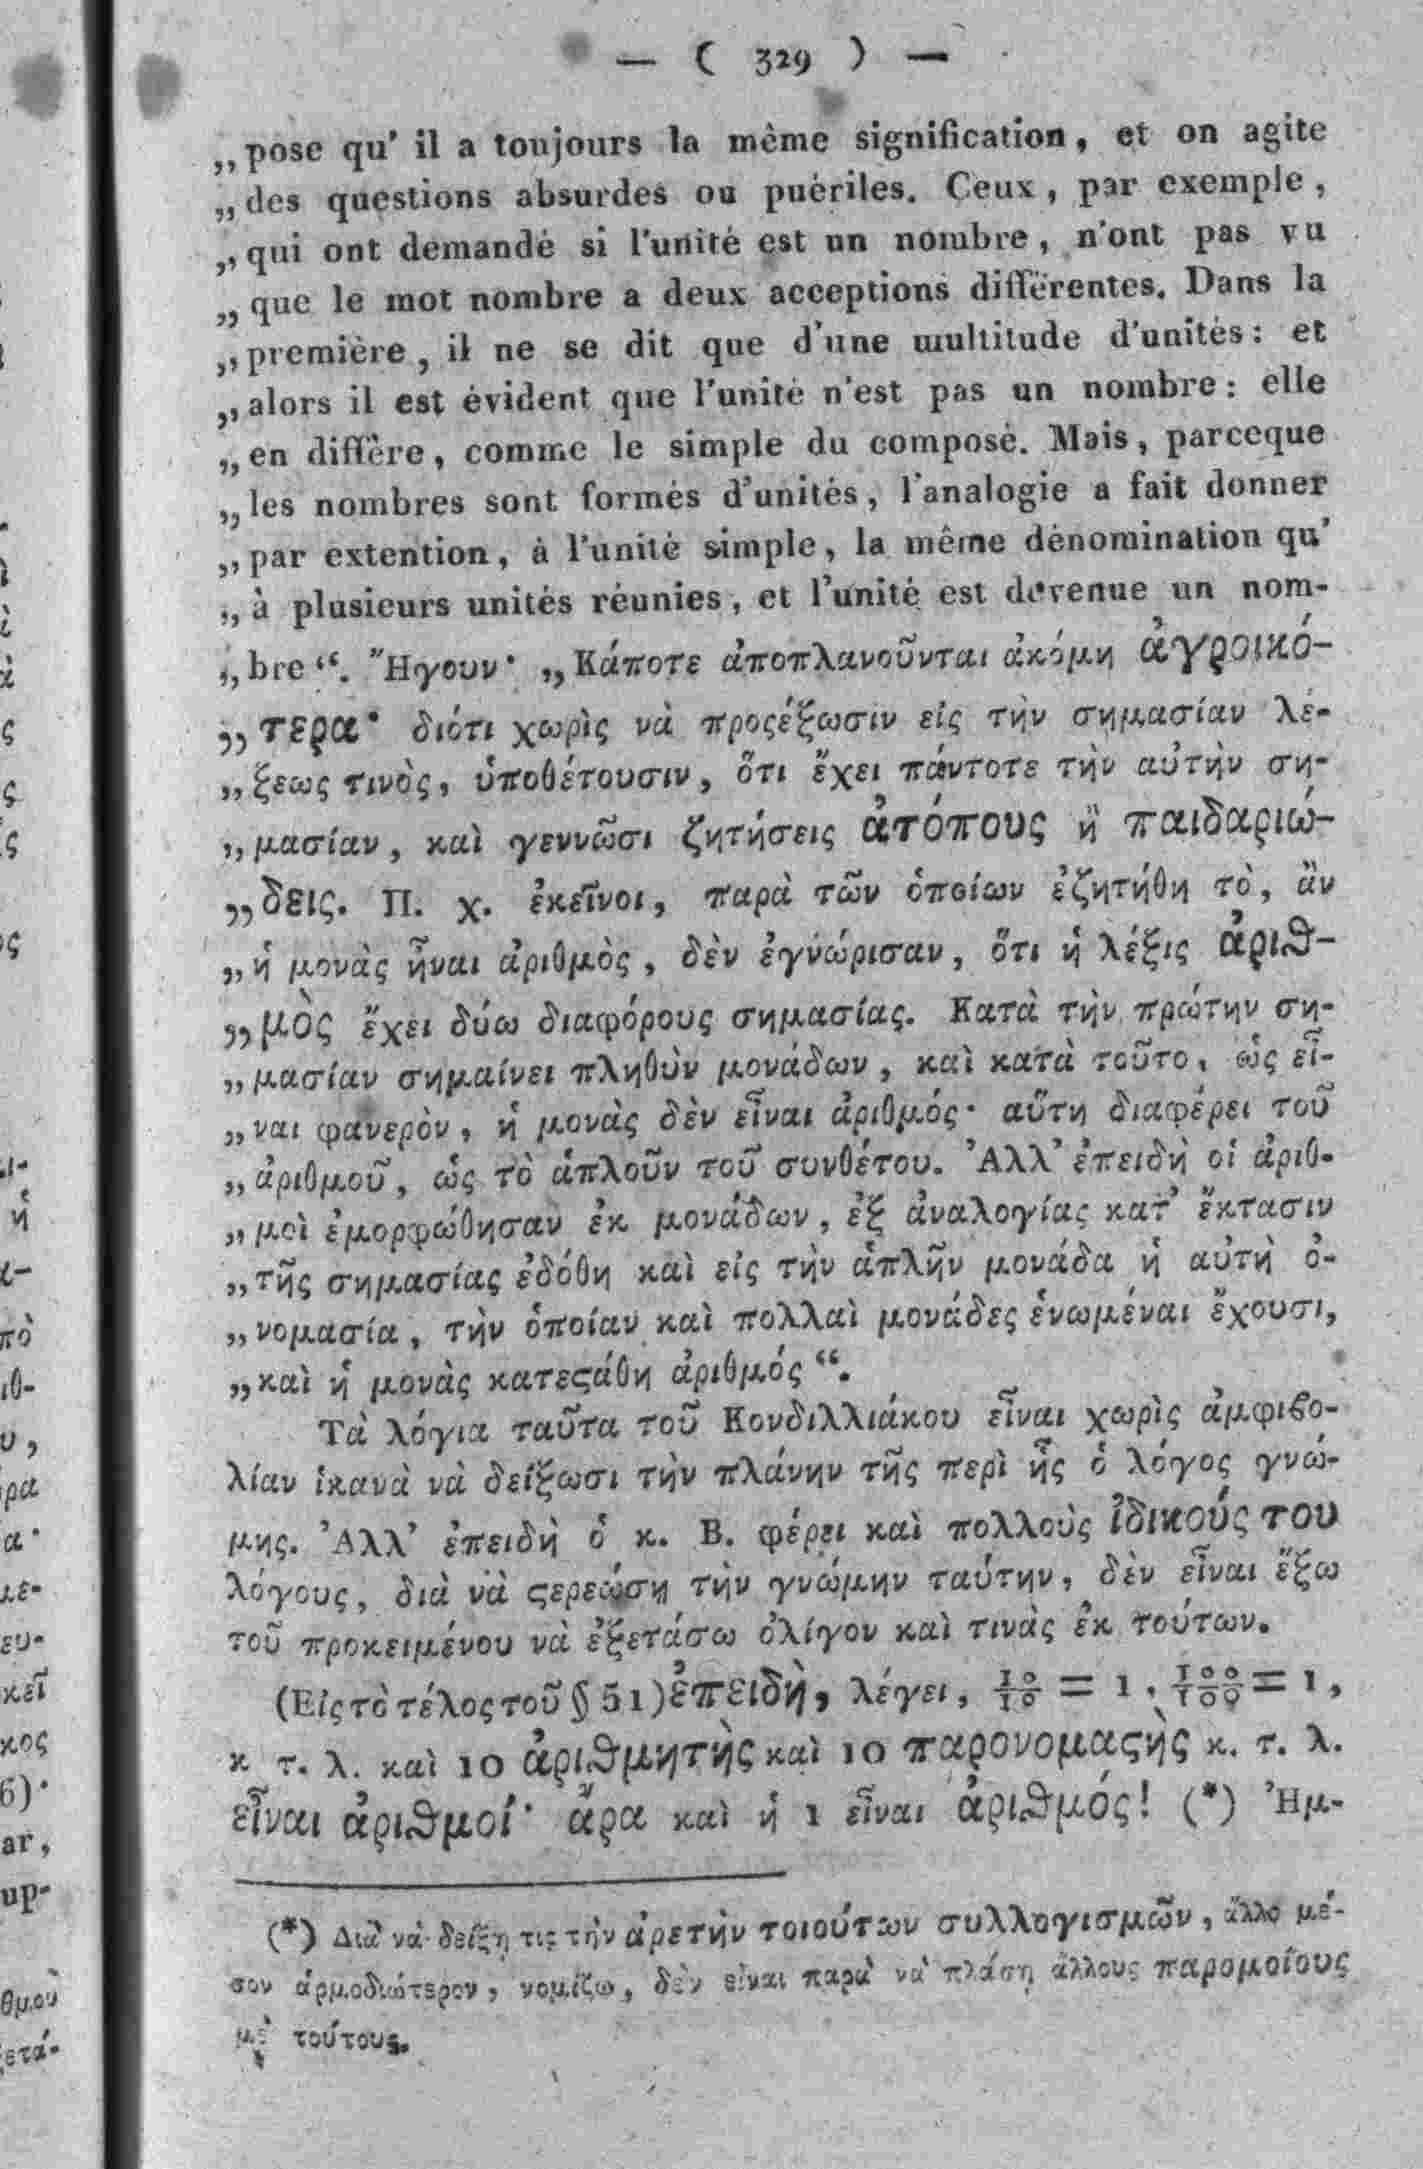 — ( 329 ) —
„pose qu' il a toujours la même signification, et on agite
„des questions absurdes ou puériles. Ceux, par exemple,
„qui ont demandé si l'unité est un nombre, n'ont pas vu
„que le mot nombre a deux acceptions différentes. Dans la
„première, il ne se dit que d'une multitude d'unités: et
„alors il est évident que l'unité n'est pas un nombre: elle
„en diffère, comme le simple du composé. Mais, parceque
„les nombres sont formés d'unités, l'analogie a fait donner
„par extention, à l'unité simple, la même dénomination qu'
„à plusieurs unités réunies, et l'unité est devenue un nom-
„bre“. Ἤγουν· „Κάποτε ἀποπλανοῦνται ἀκόμη ἀγροικό-
„τερα· διότι χωρὶς νὰ προςέξωσιν εἰς τὴν σημασίαν λέ-
„ξεως τινὸς, ὑποθέτουσιν, ὅτι ἔχει πάντοτε τὴν αὐτὴν ση-
„μασίαν, καὶ γεννῶσι ζητήσεις ἀτόπους ἢ παιδαριώ-
„δεις. Π. χ. ἐκεῖνοι, παρὰ τῶν ὁποίων ἐζητήθη τὸ, ἂν
„ἡ μονὰς ἦναι ἀριθμὸς, δὲν ἐγνώρισαν, ὅτι ἡ λέξις ἀριθ-
„μὸς ἔχει δύω διαφόρους σημασίας. Κατὰ τὴν πρώτην ση-
„μασίαν σημαίνει πληθὺν μονάδων, καὶ κατὰ τοῦτο, ὡς εἶ-
„ναι φανερὸν, ἡ μονὰς δὲν εἶναι ἀριθμός· αὕτη διαφέρει τοῦ
„ἀριθμοῦ, ὡς τὸ ἁπλοῦν τοῦ συνθέτου. Ἀλλ' ἐπειδὴ οἱ ἀριθ-
„μοὶ ἐμορφώθησαν ἐκ μονάδων, ἐξ ἀναλογίας κατ' ἔκτασιν
„τῆς σημασίας ἐδόθη καὶ εἰς τὴν ἁπλῆν μονάδα ἡ αὐτὴ ὀ-
„νομασία, τὴν ὁποίαν καὶ πολλαὶ μονάδες ἑνωμέναι ἔχουσι,
„καὶ ἡ μονὰς κατεϛάθη ἀριθμός“.
Τὰ λόγια ταῦτα τοῦ Κονδιλλιάκου εἶναι χωρὶς ἀμφιβο-
λίαν ἱκανὰ νὰ δείξωσι τὴν πλάνην τῆς περὶ ἧς ὁ λόγος γνώ-
μης. Ἀλλ' ἐπειδὴ ὁ κ. Β. φέρει καὶ πολλοὺς ἰδικούς του
λόγους, διὰ νὰ ϛερεώσῃ τὴν γνώμην ταύτην, δὲν εἶναι ἔξω
τοῦ προκειμένου νὰ ἐξετάσω ὀλίγον καὶ τινὰς ἐκ τούτων.
(Εἰς τὸ τέλος τοῦ § 51) ἐπειδὴ, λέγει, 10/10 = 1, 100/100 = 1,
κ τ. λ. καὶ 10 ἀριθμητὴς καὶ 10 παρονομαϛὴς κ. τ. λ.
εἶναι ἀριθμοί· ἄρα καὶ ἡ 1 εἶναι ἀριθμός! (*) Ἡμ-
(*) Διὰ νὰ δείξῃ τις τὴν ἀρετὴν τοιούτων συλλογισμῶν, ἄλλο μέ-
σον ἁρμοδιώτερον, νομίζω, δὲν εἶναι παρὰ νὰ πλάσῃ ἄλλους παρομοίους
μὲ τούτους.